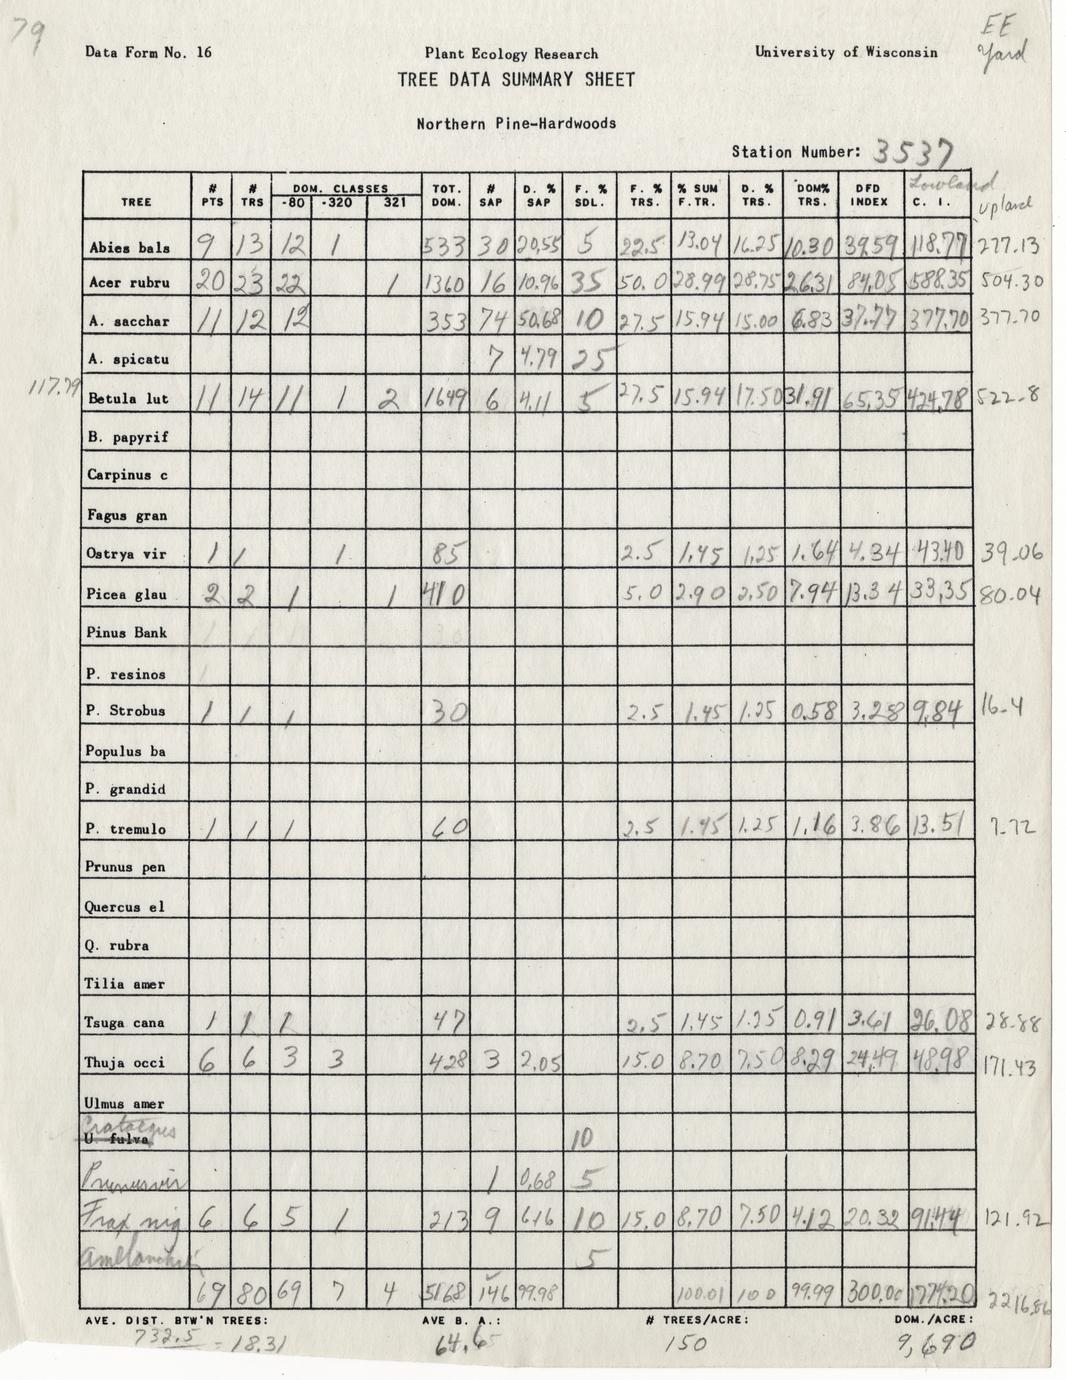 79
EE
Yard
Data Form No. 16 Plant Ecology Research University of Wisconsin
TREE DATA SUMMARY SHEET
Northern Pine-Hardwoods
Station Number: 3537
TREE # PTS # TRS DOM. CLASSES -80 -320 321 TOT. DOM. # SAP D. % SAP F. % SDL. F. % TRS. % SUM F.TR. D. % TRS. DOM% TRS. DFD INDEX Lowland C. I. upland
Abies bals 9 13 12 1 533 30 20.55 5 22.5 13.04 16.25 10.30 39.59 118.77 277.13
Acer rubru 20 23 22 1 1360 16 10.96 35 50.0 28.99 28.75 26.31 84.05 588.35 504.30
A. sacchar 11 12 12 353 74 50.68 10 27.5 15.94 15.00 6.83 37.77 377.70 377.70
A. spicatu 7 4.79 25
117.79 Betula lut 11 14 11 1 2 1649 6 4.11 5 27.5 15.94 17.50 31.91 65.35 424.78 522-8
B. papyrif
Carpinus c
Fagus gran
Ostrya vir 1 1 1 85 2.5 1.45 1.25 1.64 4.34 43.40 39.06
Picea glau 2 2 1 1 410 5.0 2.90 2.50 7.94 13.34 33.35 80.04
Pinus Bank
P. resinos
P. Strobus 1 1 1 30 2.5 1.45 1.25 0.58 3.28 9.84 16-4
Populus ba
P. grandid
P. tremulo 1 1 1 60 2.5 1.45 1.25 1.16 3.86 13.51 7.72
Prunus pen
Quercus el
Q. rubra
Tilia amer
Tsuga cana 1 1 1 47 2.5 1.45 1.25 0.91 3.61 26.08 28.88
Thuja occi 6 6 3 3 428 3 2.05 15.0 8.70 7.50 8.29 24.49 48.98 171.43
Ulmus amer
Crataegus
U. fulva 10
Prunus vir 1 0.68 5
Frax nig 6 6 5 1 213 9 6.16 10 15.0 8.70 7.50 4.12 20.32 91.44 121.92
Amelanchi 5
69 80 69 7 4 5168 146 99.98 100.01 100 99.99 300.00 1774.20 2216.86
AVE. DIST. BTW'N TREES: AVE B. A.: # TREES/ACRE: DOM./ACRE:
732.5 = 18.31 64.6 150 9,690